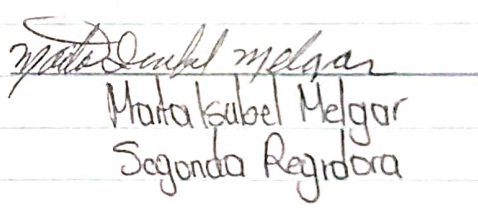 Marta Isabel Melgar
Marta Isabel Melgar
Segonda Regidora